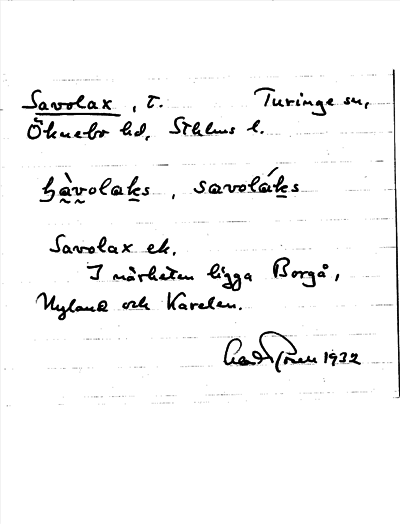 Savolax, T. Turinge sn,
Öknebo hd, Sthlms l.
sàvolaks, savoláks
Savolax ek.
I närheten ligga Borgå,
Nyland och Karelen.
1932